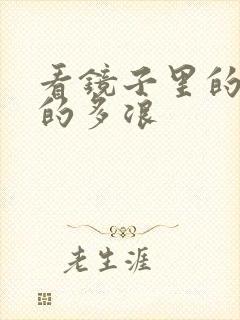 看镜子里的
的多浪
老生涯